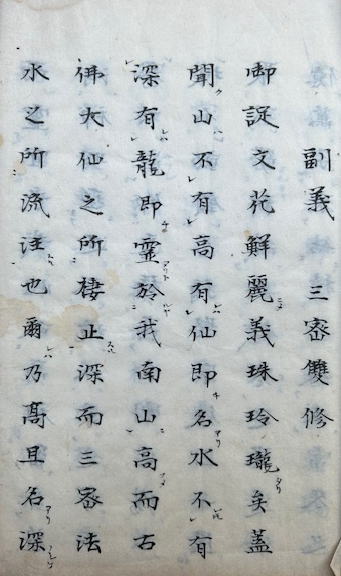 副義 三密雙修
御誂文花鮮麗義珠玲瓏矣蓋
聞山不有高有仙即名水不有
深有龍即靈於我南山高而古
佛大仙之所棲止深而三密法
水之所流注也爾乃髙且名深